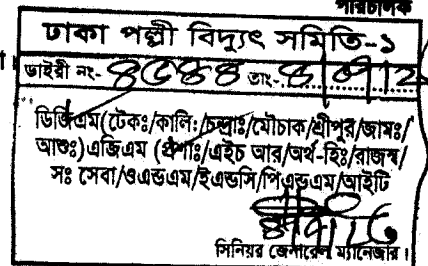 পরিচালক
ঢাকা পল্লী বিদ্যুৎ সমিতি-১
ডাইরী নং- ৪৫৪৪ তাং-
ডিজিএম(টেকঃ/কালিঃ/চন্দ্রাঃ/মৌচাক/শ্রীপুর/জামঃ/
আশুঃ)এজিএম (প্রশাঃ/এইচ আর/অর্থ-হিঃ/রাজস্ব/
সঃ সেবা/ওএন্ডএম/ইএন্ডসি/পিএন্ডএম/আইটি
সিনিয়র জেনারেল ম্যানেজার।